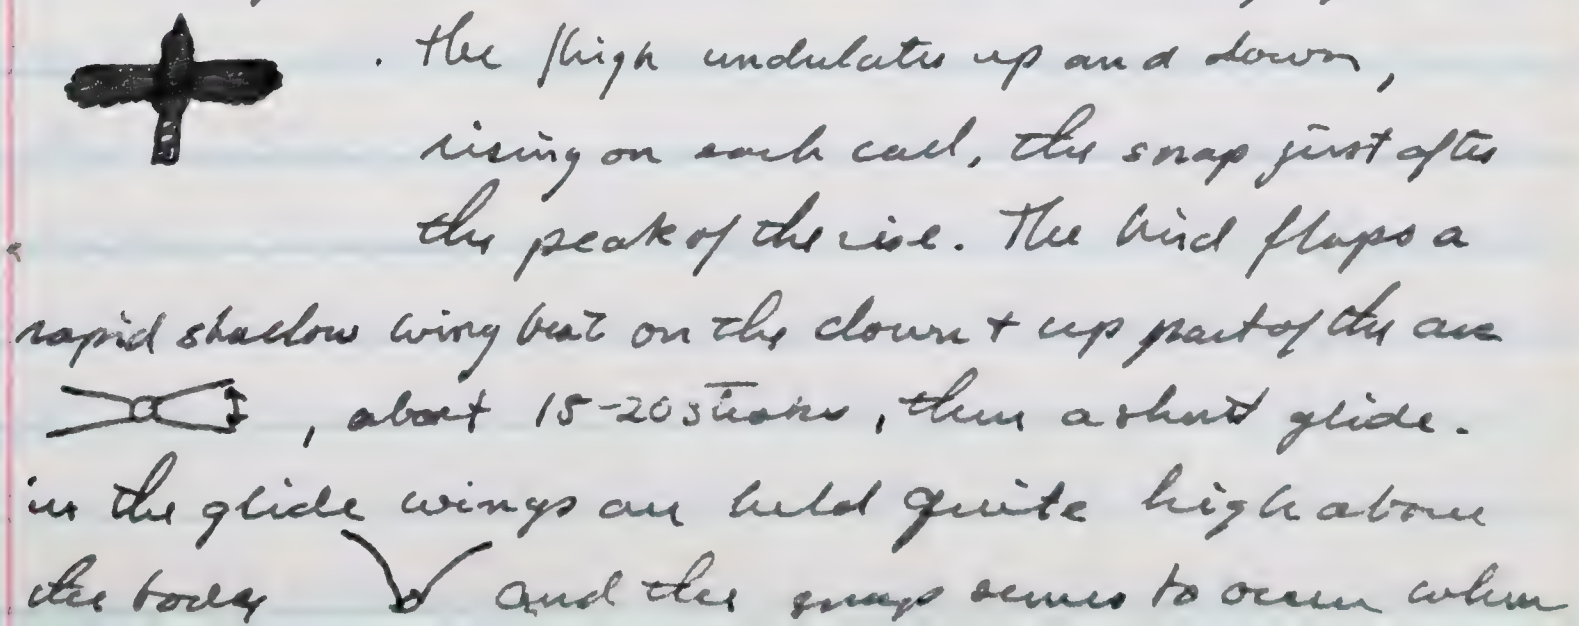 . the fligh undulates up and down,
rising on each call, the snap just after
the peak of the rise. The bird flaps a
rapid shallow wing beat on the down + up part of the arc
, about 15-20 strokes, then a short glide.
in the glide wings are held quite high above
the body and the snap seems to occur when